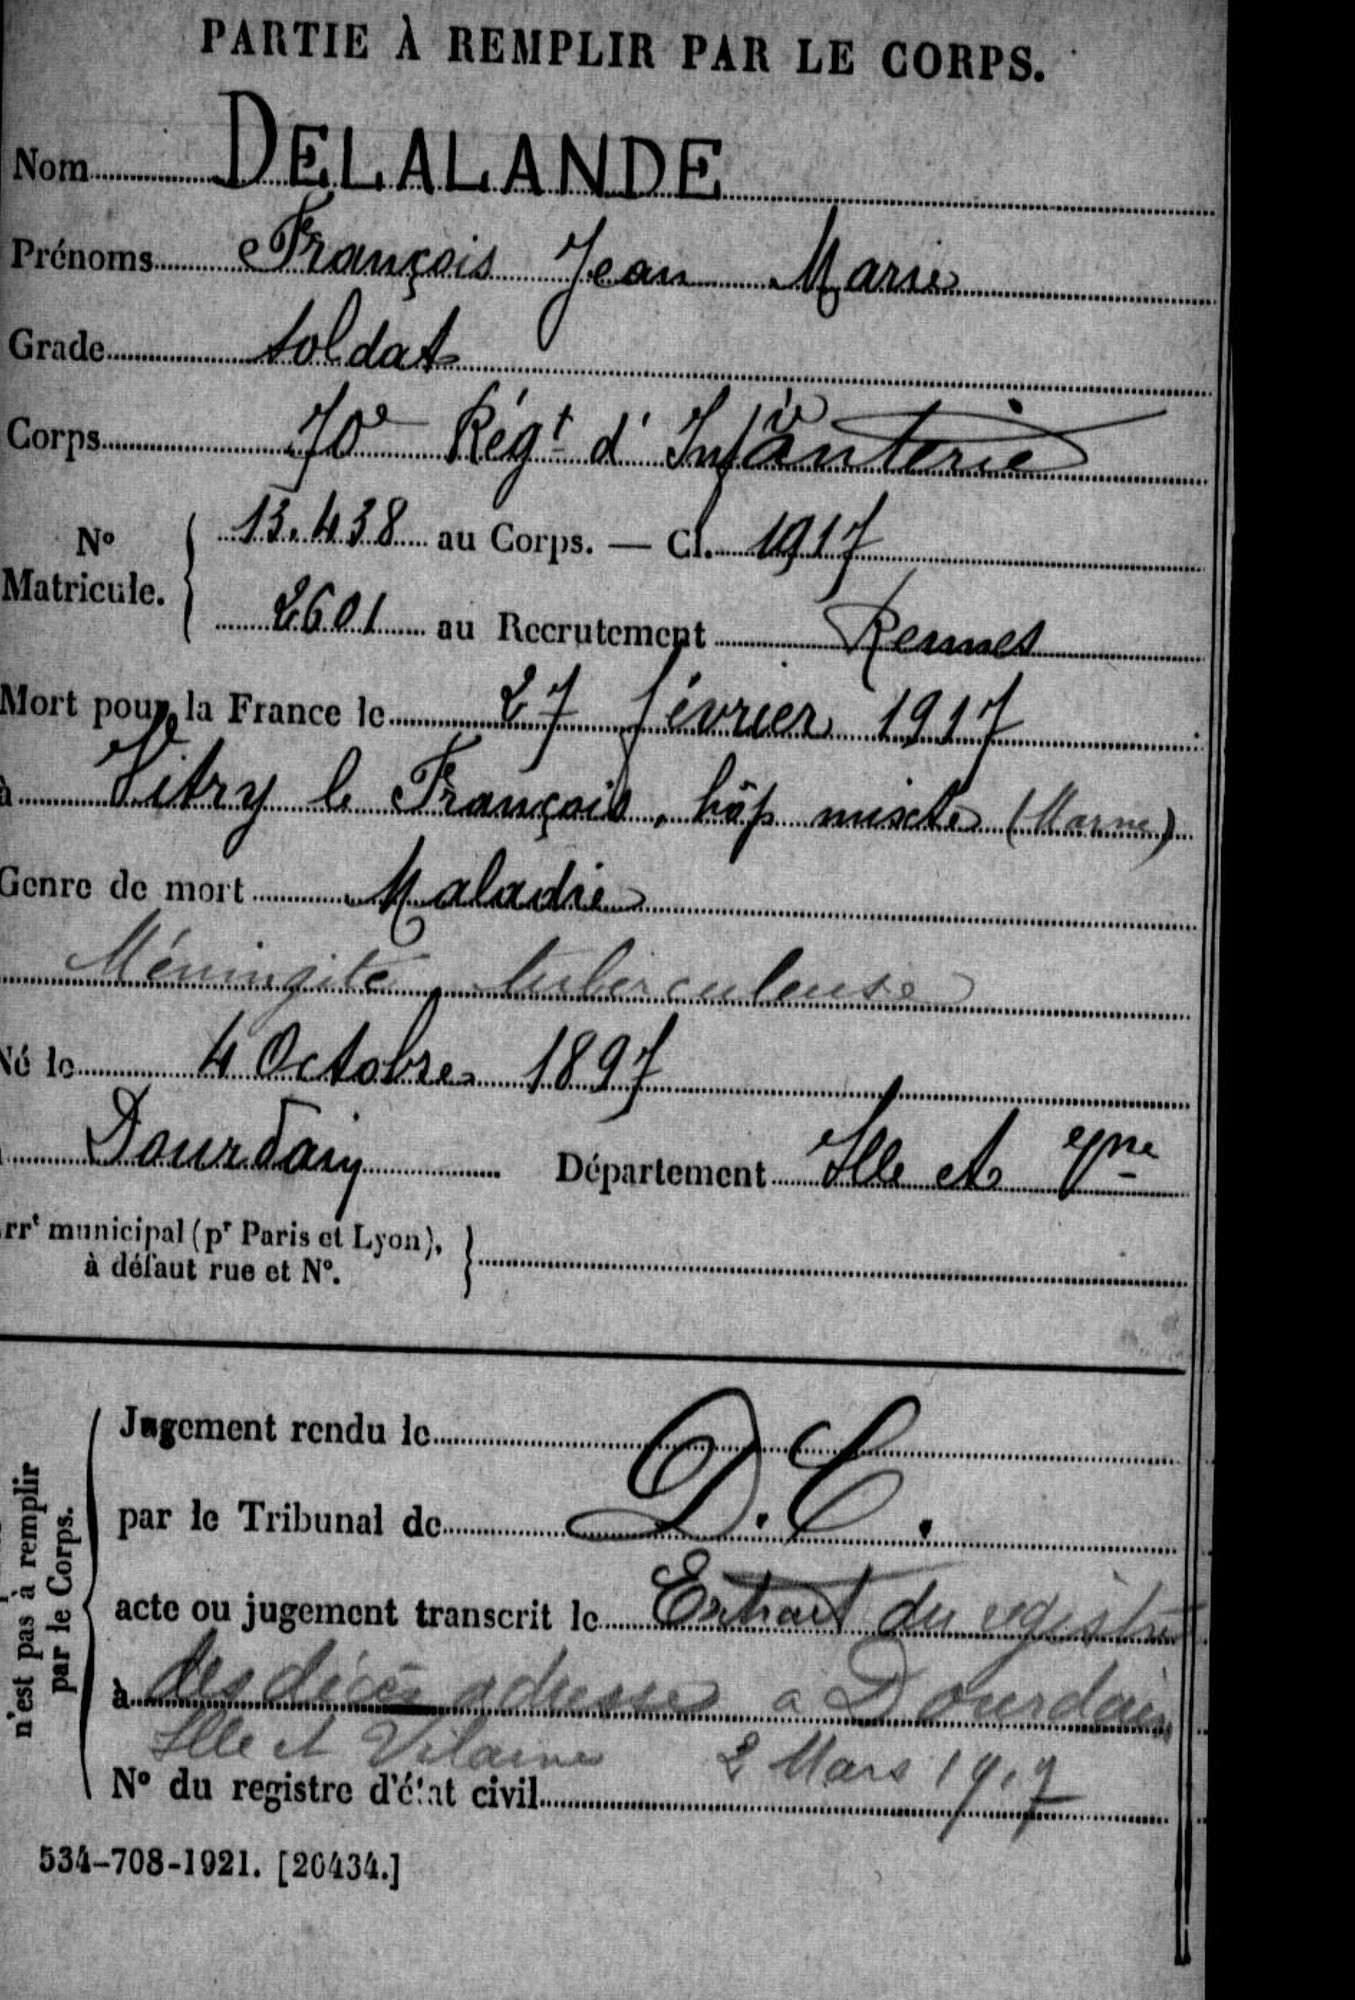 PARTIE À REMPLIR PAR LE CORPS.
Nom DELALANDE
Prénoms François Jean Marie
Grade soldat
Corps 70e Régt d'Infanterie
No Matricule. { 13.438 au Corps. — Cl. 1917
2601 au Recrutement Rennes
Mort pour la France le 27 février 1917
à Vitry le François, hôp mixte (Marne)
Genre de mort Maladie
Méningite tuberculeuse
Né le 4 Octobre 1897
Dourdain Département Ille et Vne
rrt municipal (pr Paris et Lyon), }
à défaut rue et No.
n'est pas à remplir
par le Corps.
Jugement rendu le
par le Tribunal de D.C.
acte ou jugement transcrit le Extrait du registre
à des décès adressé a Dourdain
Ille et Vilaine 2 Mars 1917
No du registre d'état civil
534-708-1921. [20434.]